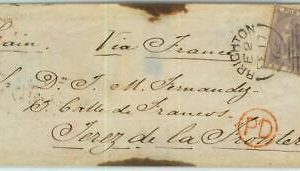 Spain.
Via France
S. Dn. J. M. Fernandez
5. Calle de Francos
Jerez de la Fronter
BRIGHTON
PD